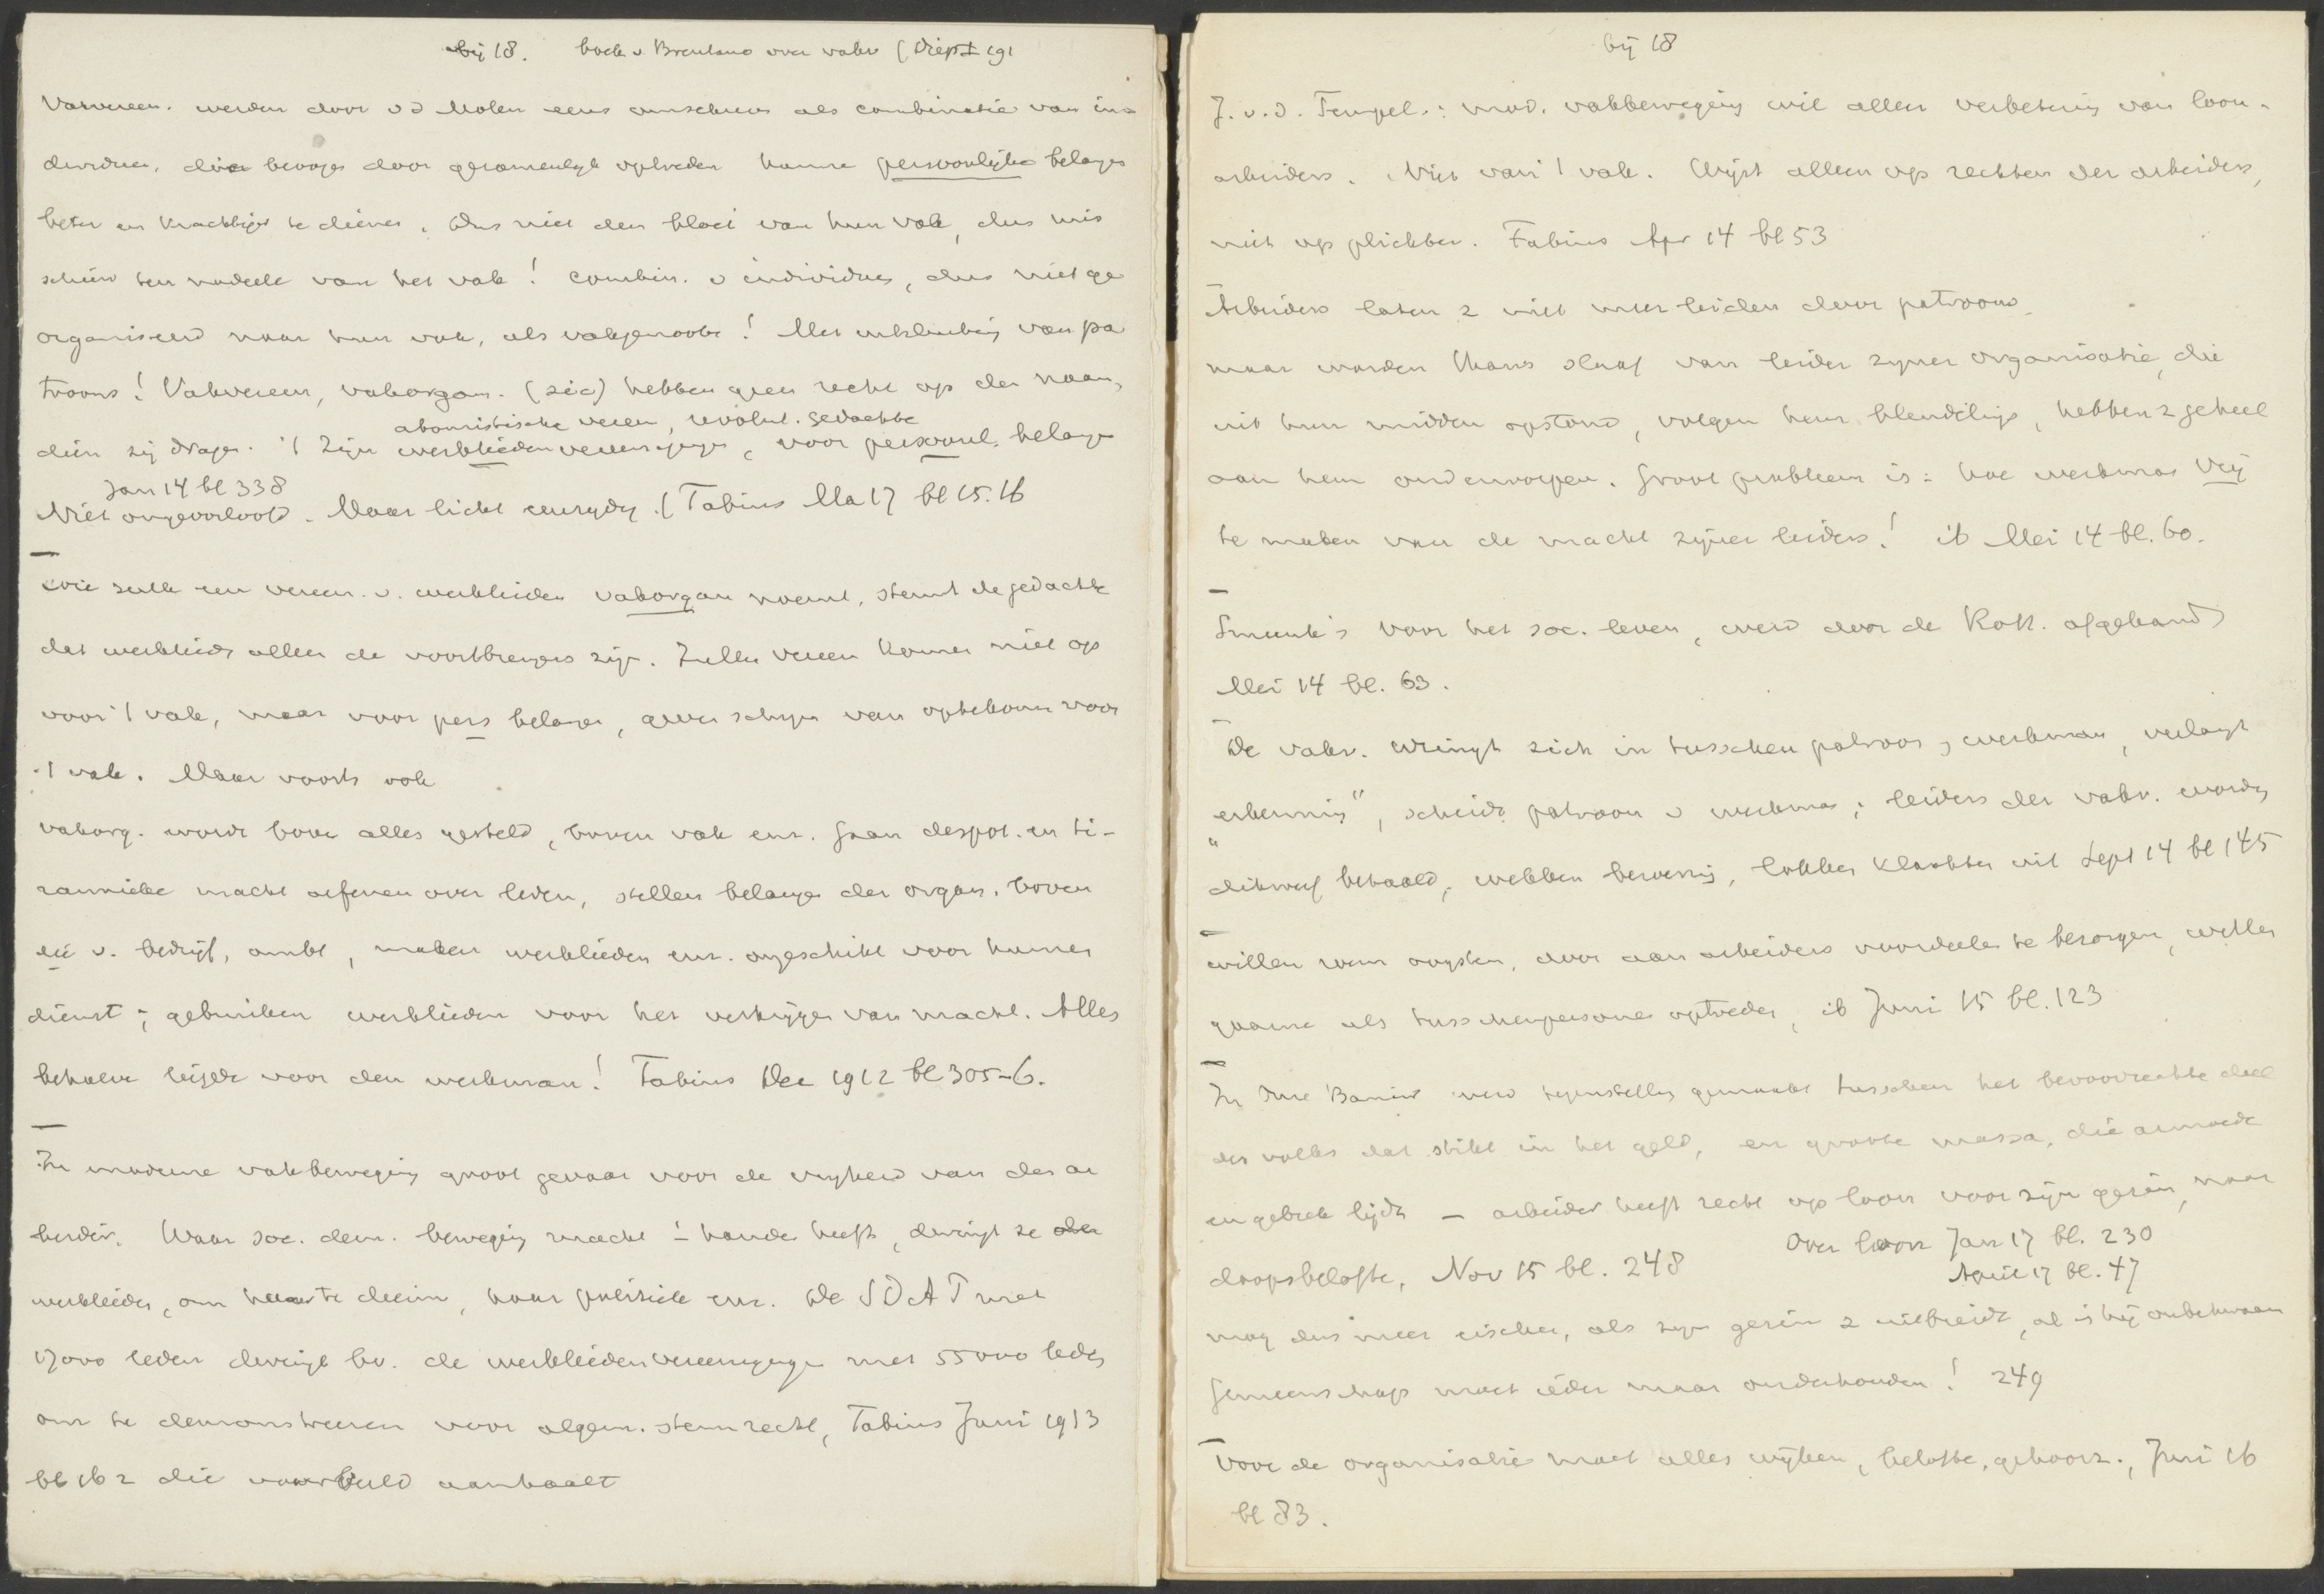 bij 18. boek v Brentano over vakv (Diep I 191
Vakvereen. werden door v d Molen eens omschreven als combinatie van in-
dividuen, die beoogen door gezamenlijk optreden hunne persoonlijke belangen
beter en krachtiger te dienen. Dus niet den bloei van hun vak, dus mis
schien ten nadeele van het vak! Combin. v individuen, dus niet ge
organiseerd naar hun vak, als vakgenooten! Met uitsluiting van pa
troons! Vakvereen, vakorgan. (sic) hebben geen recht op den naam,
atomistische vereen, revolut. gedachte
dien zij dragen. 't Zijn werkliedenvereenigingen, voor persoonl. belangen
Jan 14 bl 338
Niet ongeoorloofd. Maar licht eenzijdig. (Fabius Ma 17 bl 15.16
Wie zulk een vereen. v. werklieden vakorgan noemt, steunt de gedachte
dat werklieden alleen de voortbrengers zijn. Zulke vereen komen niet op
voor 't vak, maar voor pers belangen, schijn van optekomen voor
't vak. Maar voorts ook
vakorg. wordt boven alles gesteld, boven vak enz. Gaan despot. en ti-
rannieke macht oefenen over leden, stellen belangen der organ. boven
die v. bedrijf, ambt, maken werklieden enz. ongeschikt voor hunnen
dienst; gebruiken werklieden voor het verkrijgen van macht. Alles
behalve liefde voor den werkman! Fabius Dec 1912 bl 305-6.
In moderne vakbeweging groot gevaar voor de vrijheid van den ar
beider. Waar soc. dem. beweging macht in handen heeft, dwingt ze den
werklieden, om haar te dienen, haar politiek enz. De SDAP met
17000 leden dwingt bv. de werkliedenvereenigingen met 55000 leden
om te demonstreeren voor algem. stemrecht, Fabius Juni 1913
bl 162 die voorbeeld aanhaalt
bij 18
J. v. d. Tempel.: mod. vakbeweging wil alleen verbetering van loon-
arbeiders. Niet van 't vak. Wijst alleen op rechten der arbeiders,
niet op plichten. Fabius Apr 14 bl 53
Arbeiders laten z niet meer leiden door patroons,
maar worden thans slaaf van leider zijner organisatie, die
uit hun midden opstond, volgen hem blindelings, hebben z geheel
aan hem onderworpen. Groot probleem is: hoe werkman vrij
te maken van de macht zijner leiders! ib Mei 14 bl. 60.
voor het soc. leven, werd door de Kath. afgekeurd
Mei 14 bl. 63.
De vakv. wringt zich in tusschen patroon en werkman, verlangt
"erkenning", scheidt patroon v werkman; leiders der vakv. worden
dikwerf betaald, wekken beroering, lokken klachten uit Sept 14 bl 145
willen roem oogsten, door aan arbeiders voordeelen te bezorgen, willen
gaarne als tusschenpersonen optreden, ib Juni 15 bl. 123
In Ons Banier werd tegenstelling gemaakt tusschen het bevoorrechte deel
des volks dat stikt in het geld, en groote massa, die armoede
en gebrek lijdt - arbeider heeft recht op loon voor zijn gezin, naar
Over loon Jan 17 bl. 230
doopsbelofte, Nov 15 bl. 248
April 17 bl. 47
mag dus meer eischen, als zijn gezin z uitbreidt, al is hij onbekwaam
Gemeenschap moet ieder maar onderhouden! 249
Voor de organisatie moet alles wijken, belofte, gehoorz., Juni 16
bl 83.